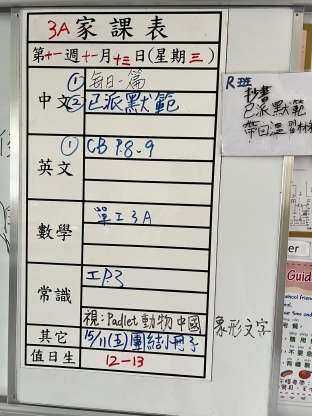 3A 家課表
第十一週十一月十三日(星期三)
中文
① 每日一篇
② 已派默範
英文
① GB P.8-9
數學
單工3A
常識
工P.3
視：Padlet 動物中國象形文字
其它
15/11(五)團結小冊子
值日生
12-13
R班
抄書
已派默範
帶回溫習材料
er
Guid